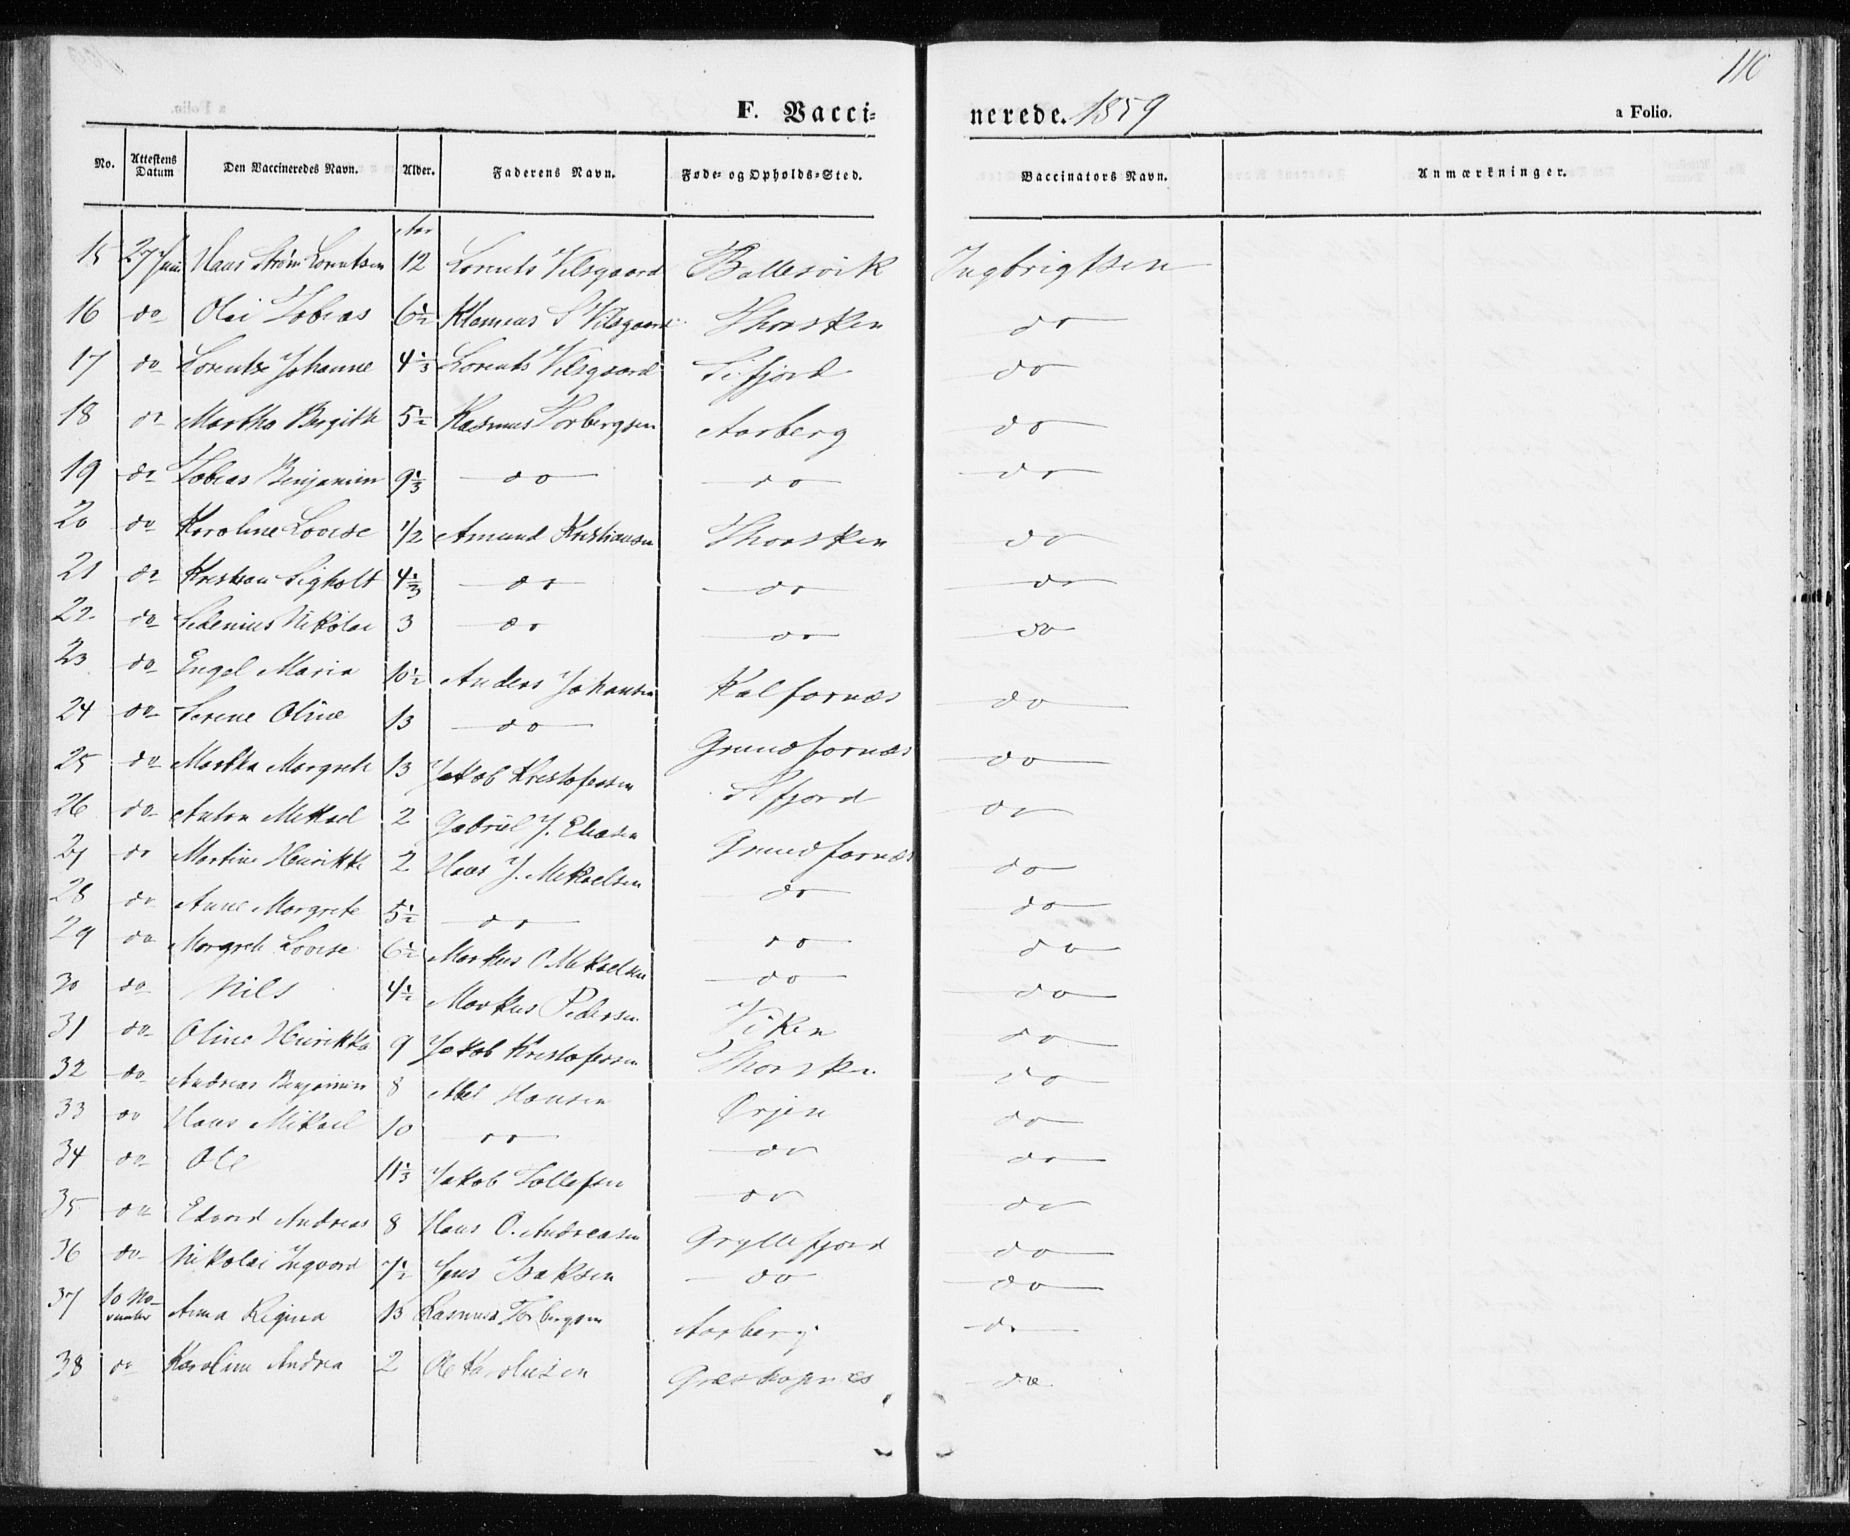 110
F. Vacci- nerede. 1859 a Folio.
No. Attestens Datum Den Vaccineredes Navn. Alder. Faderens Navn. Føde- og Opholds-Sted. Vaccinators Navn. Anmærkninger.
Aar
15 27 Juni Hans Strøm Lorentsen 12 Lorents Vilsgaard Ballesvik Ingbrigtsen
16 do Olai Tobias 6 1/2 Klemeus S Vilsgaard Thorsken do
17 do Lorentze Johanne 4 1/3 Lorents Vilsgaard Sifjord do
18 do Martha Birgitte 5 1/2 Rasmus Torbergsen Aarberg do
19 do Tobias Benjamin 9 1/3 do do do
20 do Karoline Lovise 1/2 Amund Kristiansen Thorsken do
21 do Kristian Sigholt 4 1/3 do do do
22 do Sedenius Nikolai 3 do do do
23 do Engel Maria 10 1/2 Anders Johansen Kalfarnæs do
24 do Serene Oline 13 do Grundfarnæs do
25 do Martha Margrete 13 Jakob Kristofersen Sifjord do
26 do Anton Mikael 2 Gabriel J. Eliasen Grundfarnæs do
27 do Martine Henrikke 2 Hans J. Mikaelsen do do
28 do Anne Margrete 5 1/2 do do do
29 do Margrete Lovise 6 1/2 Markus O Mikaelsen do do
30 do Nils 4 1/2 Markus Pedersen Viken do
31 do Oline Henrikka 9 Jakob Kristofersen Thorsken do
32 do Andreas Benjamin 8 Abel Hansen Ørjen do
33 do Hans Mikael 10 do do do
34 do Ole 11 1/3 Jakob Tollefsen do do
35 do Edvard Andreas 8 Hans O. Andreasen Gryllefjord do
36 do Nikolai Ingvard 7 1/2 Jens Isaksen do do
37 10 November Anna Regina 13 Rasmus Torbergsen Aarberg do
38 do Karoline Andrea 2 Ole Karolusen Græskapnæs do